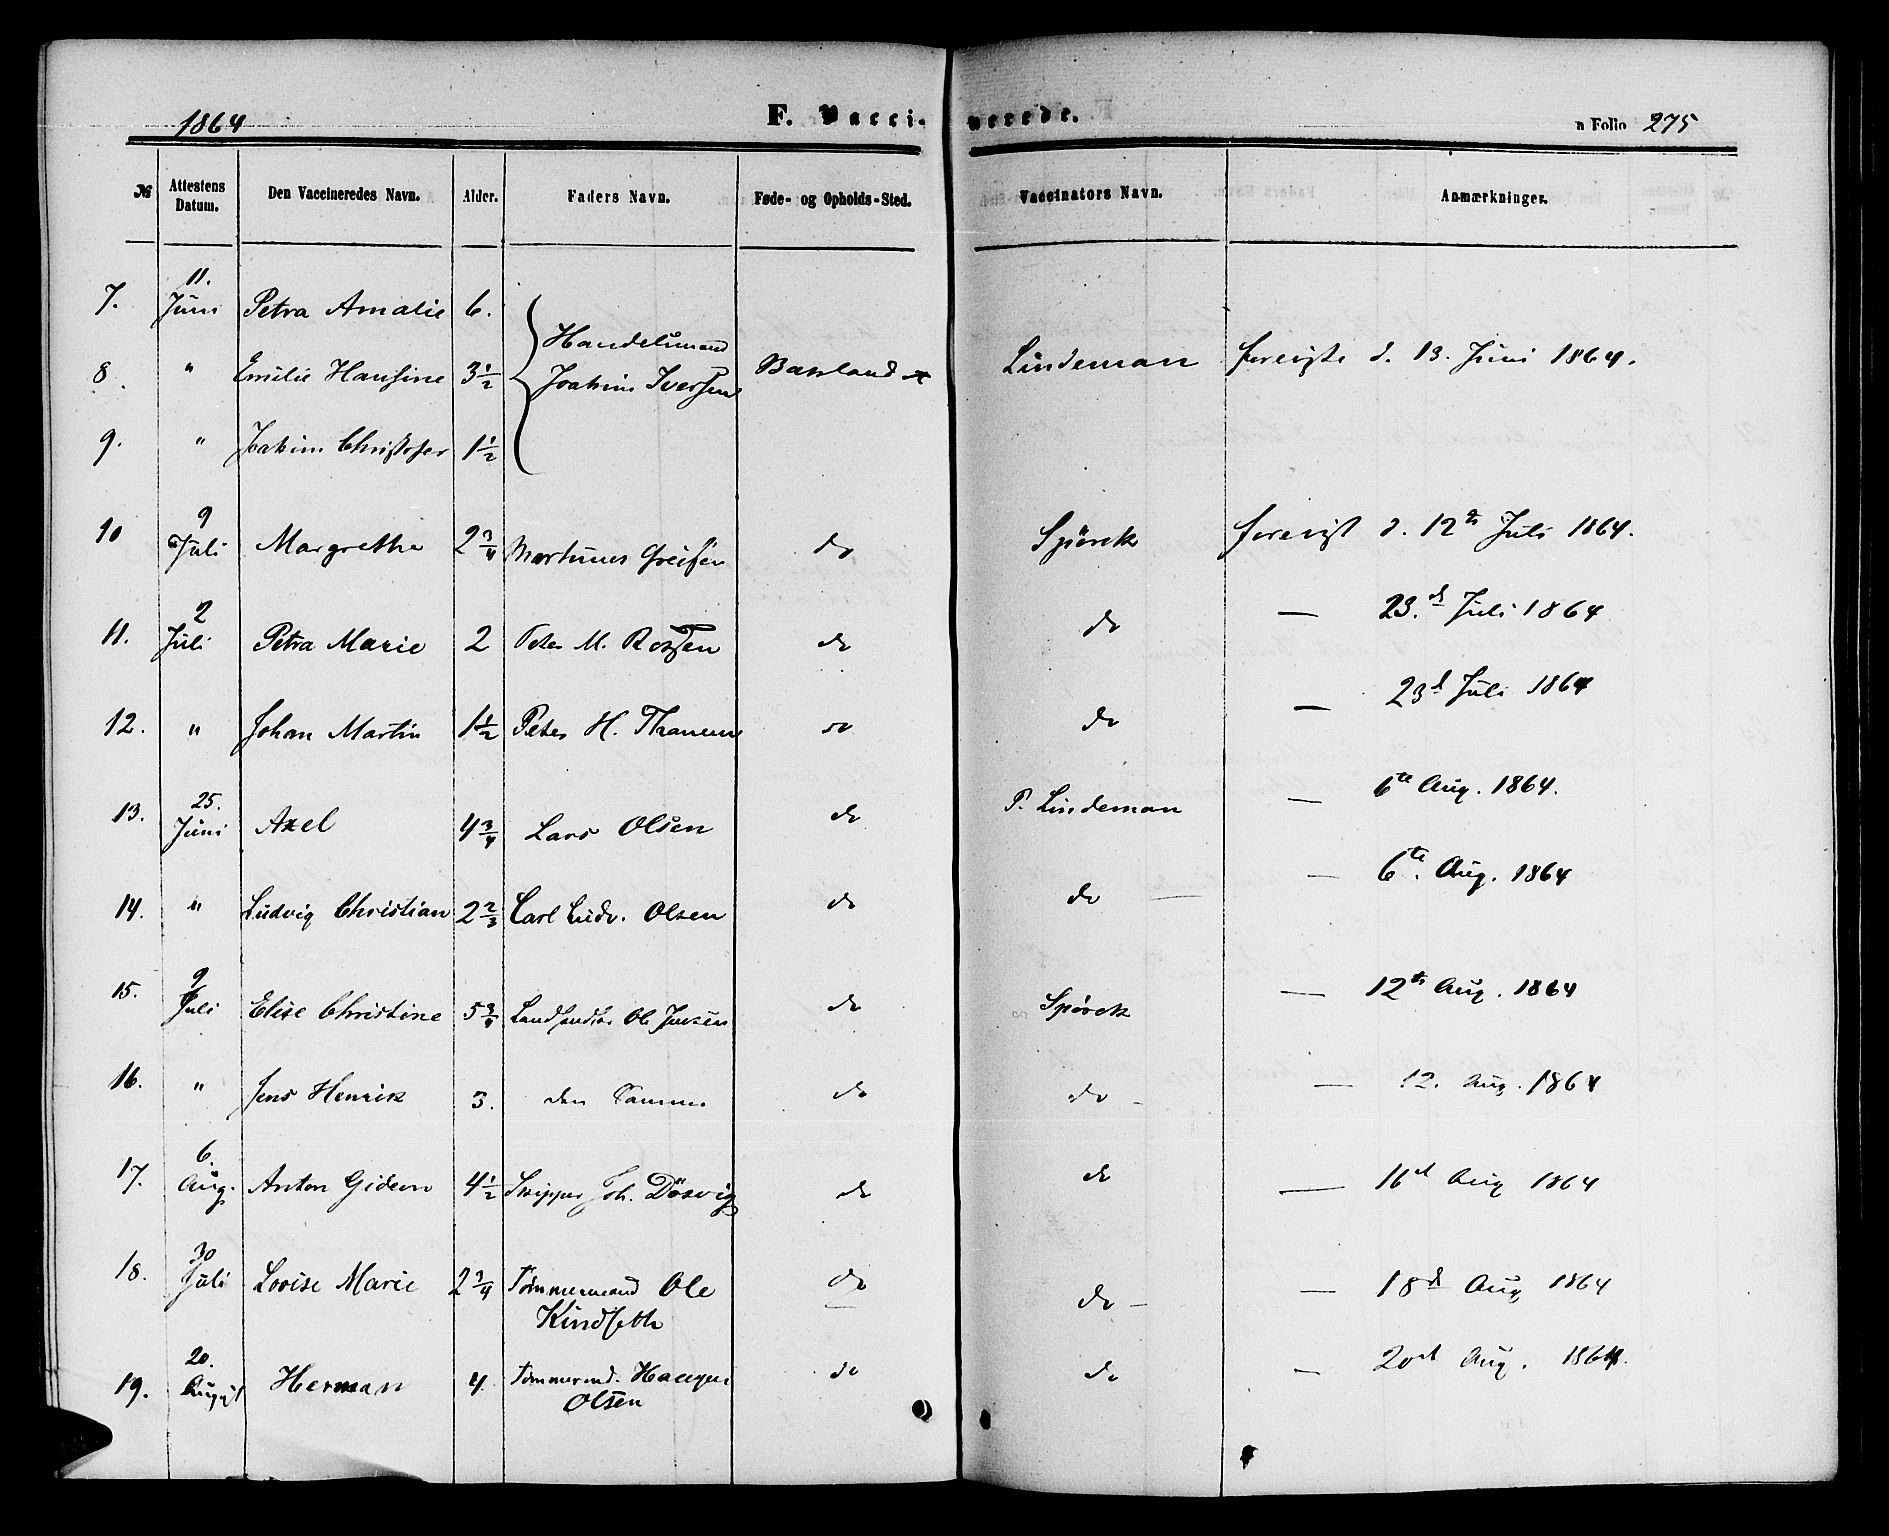 1864 F. Vaccinerede. Folio 275
№ Attestens Datum. Den Vaccineredes Navn. Alder. Faders Navn. Føde- og Opholds-Sted. Vaccinators Navn. Anmærkninger.
7. 11. Juni Petra Amalie 6.
Handelsmand
8. " Emilie Hansine 3 1/2 Joakim Iversen Lindeman forevist d. 13. Juni 1864.
9. " Joakim Christofer 1 1/2
10 9 Juli Margrethe 2 3/4 do Spörck forevist d. 12 Juli 1864.
11. 2 Juli Petra Marie 2 Peter M. do do — 23.d Juli 1864
12. " Johan Martin 1 1/2 Peter H. do do — 23d Juli 1864
13. 25. Juni Axel 4 3/4 Lars Olsen do P. Lindeman — 6te Aug. 1864.
14. " Ludvig Christian 2 2/3 Carl Ludv. Olsen do do — — 6te. Aug. 1864
15. 9 Juli Elise Christine 5 3/4 Ole Jensen do Spörck — 12 Aug. 1864
16. " Jens Henrik 3. den Samme do do — — 12. Aug. 1864
17. 6. Aug. Anton Gideon 4 1/2 Skipper Joh. Dösvig do do — 16d Aug 1864
18. 30 Juli Lovise Marie 2 3/4 Tømmermand Ole do do — — 18d Aug 1864
Kindseth
19. 20. August Herman 4 Tømmermd. do do — 20d Aug. 1864.
Olsen